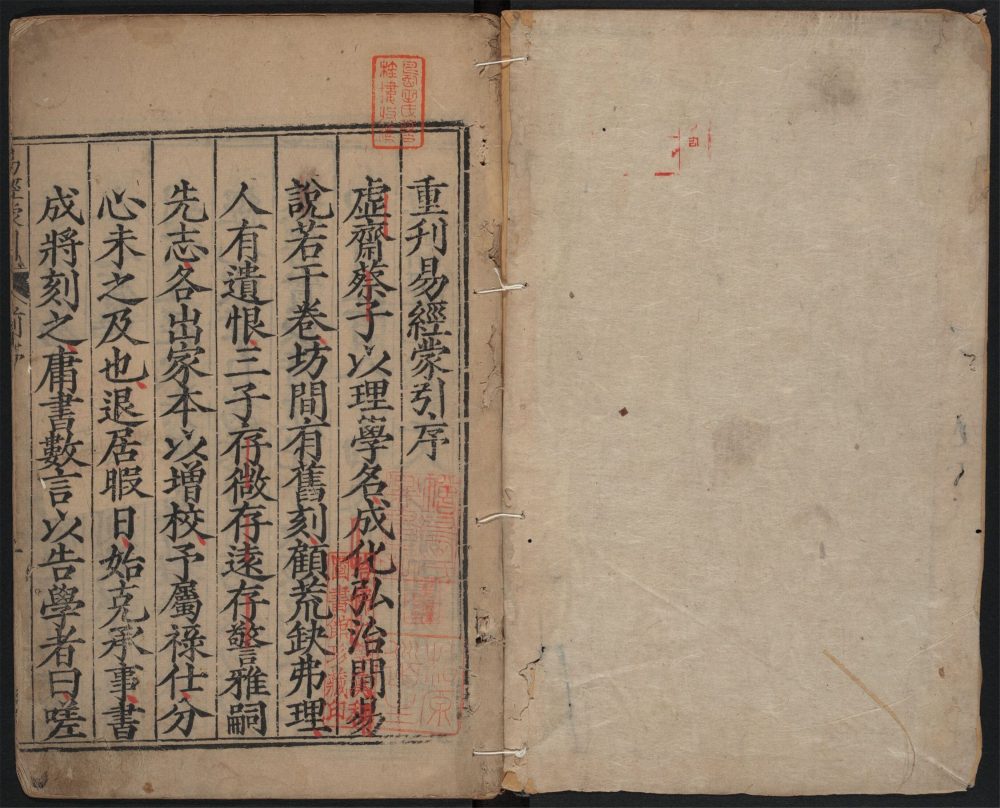 重刋易經蒙引序
虛齋蔡子以理學名成化弘治間易
說若干卷坊間有舊刻顧荒缺弗理
人有遺恨三子存微存遠存警雅嗣
先志各出家本以增校予屬祿仕分
心未之及也退居暇日始克承事書
成將刻之庸書數言以告學者曰嗟
易經蒙引
前序
圖書館珍藏印